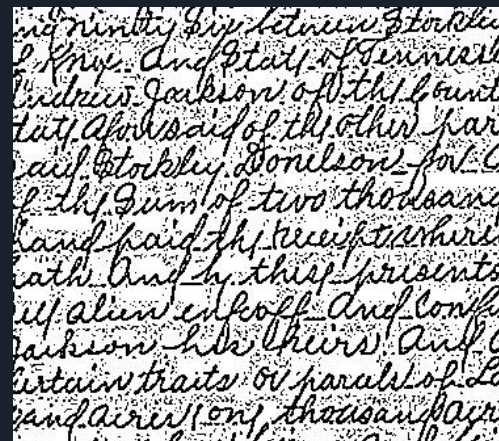 ninety Six between Stockley
Knox And State of Tennessee
Andrew Jackson of the Count
tate Aforesaid of the other par
said Stockley Donelson for
f the Sum of two thousand
hand paid the receipt where
hath And by these presents
ell alien enfeoff And Conf
Jackson his heirs And
Certain traits or parcels of La
sand acres (one thousand acr